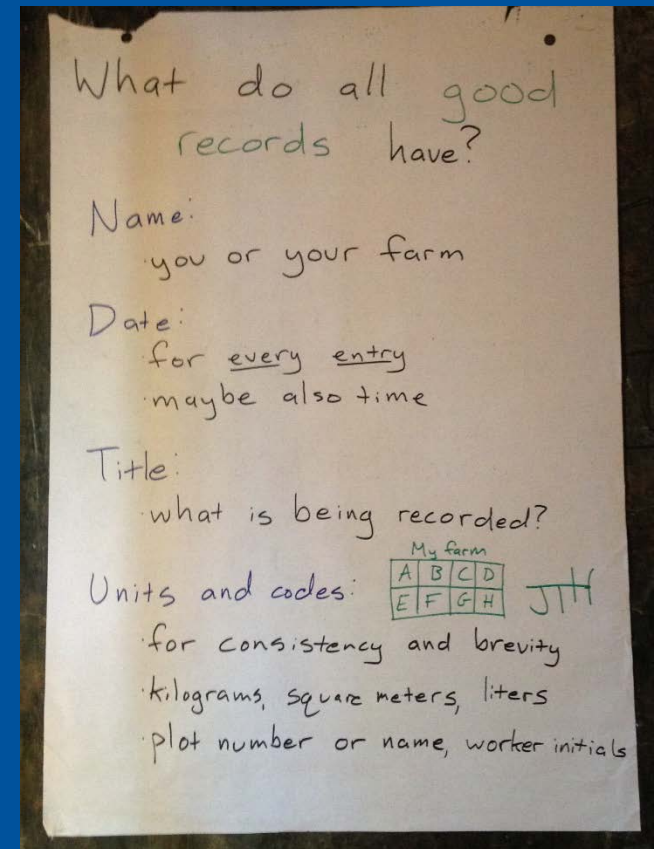 What do all good
records have?
Name:
·you or your farm
Date:
·for every entry
·maybe also time
Title:
·what is being recorded?
My farm
A B C D
E F G H
JTH
Units and codes:
·for consistency and brevity
·kilograms, square meters, liters
·plot number or name, worker initials